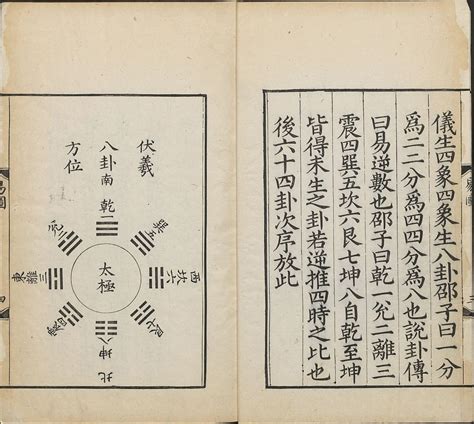 儀生四象四象生八卦邵子曰一分
爲二二分爲四四分爲八也說卦傳
曰易逆數也邵子曰乾一兌二離三
震四巽五坎六艮七坤八自乾至坤
皆得未生之卦若逆推四時之比也
後六十四卦次序放此
三
伏羲
八卦
方位
南
乾一
巽五
西
坎六
艮七
北
坤八
震四
東
離三
兌二
太極
易圖
四